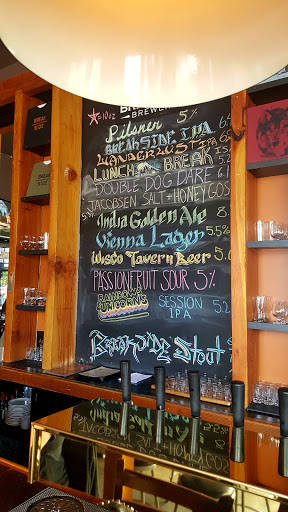 BREWERY
☆=10oz
Pilsner 5%
BREAKSIDE IPA 6.
WANDERLUST IPA 6.
LUNCH BREAK
DOUBLE DOG DARE
JACOBSEN SALT + HONEY GOS
India Golden Ale
Vienna Lager 5.5%
Wisco Tavern Beer
PASSIONFRUIT SOUR 5%
RAINBOWS & UNICORNS SESSION IPA 5.2
Breakside Stout